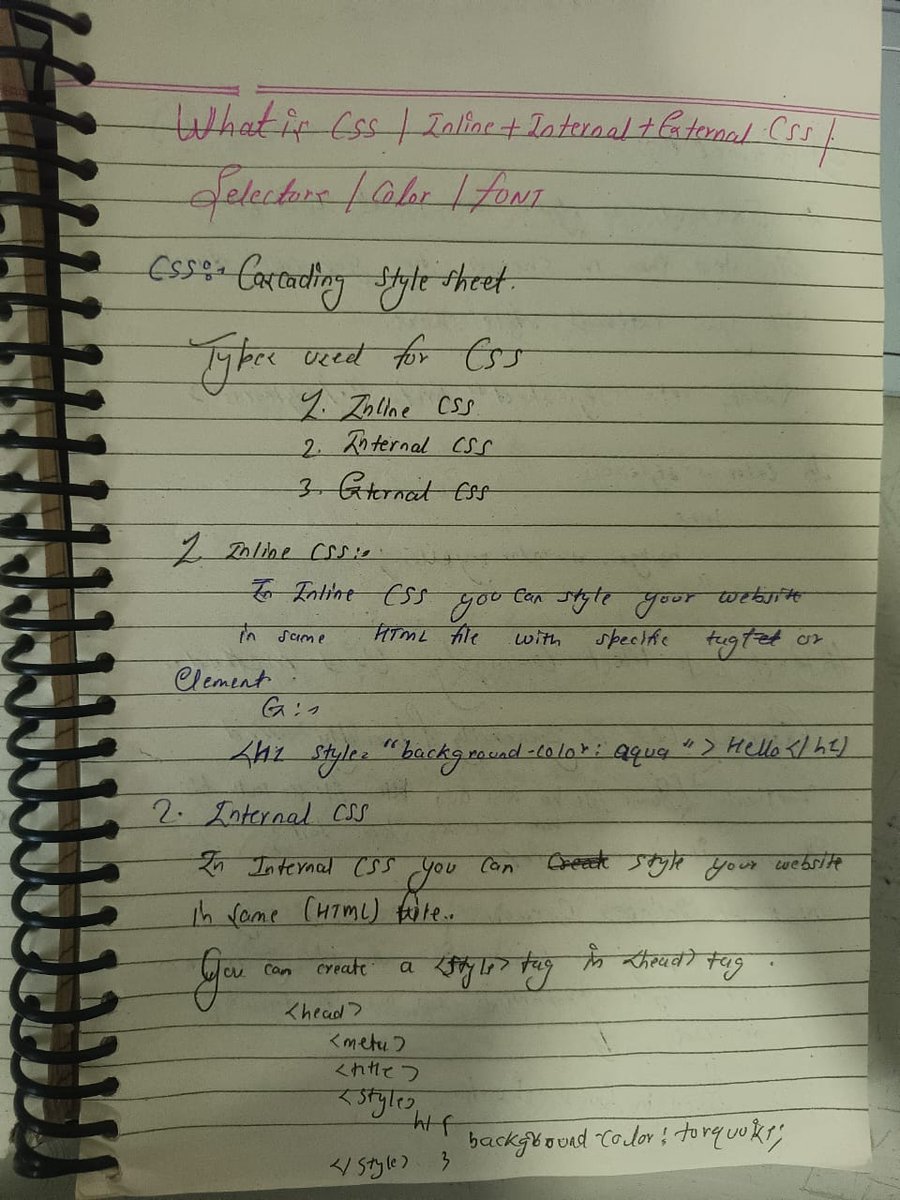 What is CSS | Inline + Internal + External CSS |
Selectors / Color / FONT
CSS:- Cascading style sheet.
Types used for CSS
1. Inline CSS
2. Internal CSS
3. External CSS
1 Inline CSS:-
In Inline CSS you can style your website
in same HTML file with specific tag or
Element
Ex:-
<h1 style="background-color: aqua"> Hello </h1>
2. Internal CSS
In Internal CSS you can Create style your website
in same (HTML) file..
You can create a <style> tag in <head> tag.
<head>
<meta>
<title>
<style>
h1 {
background-color: torquoks;
</style> }